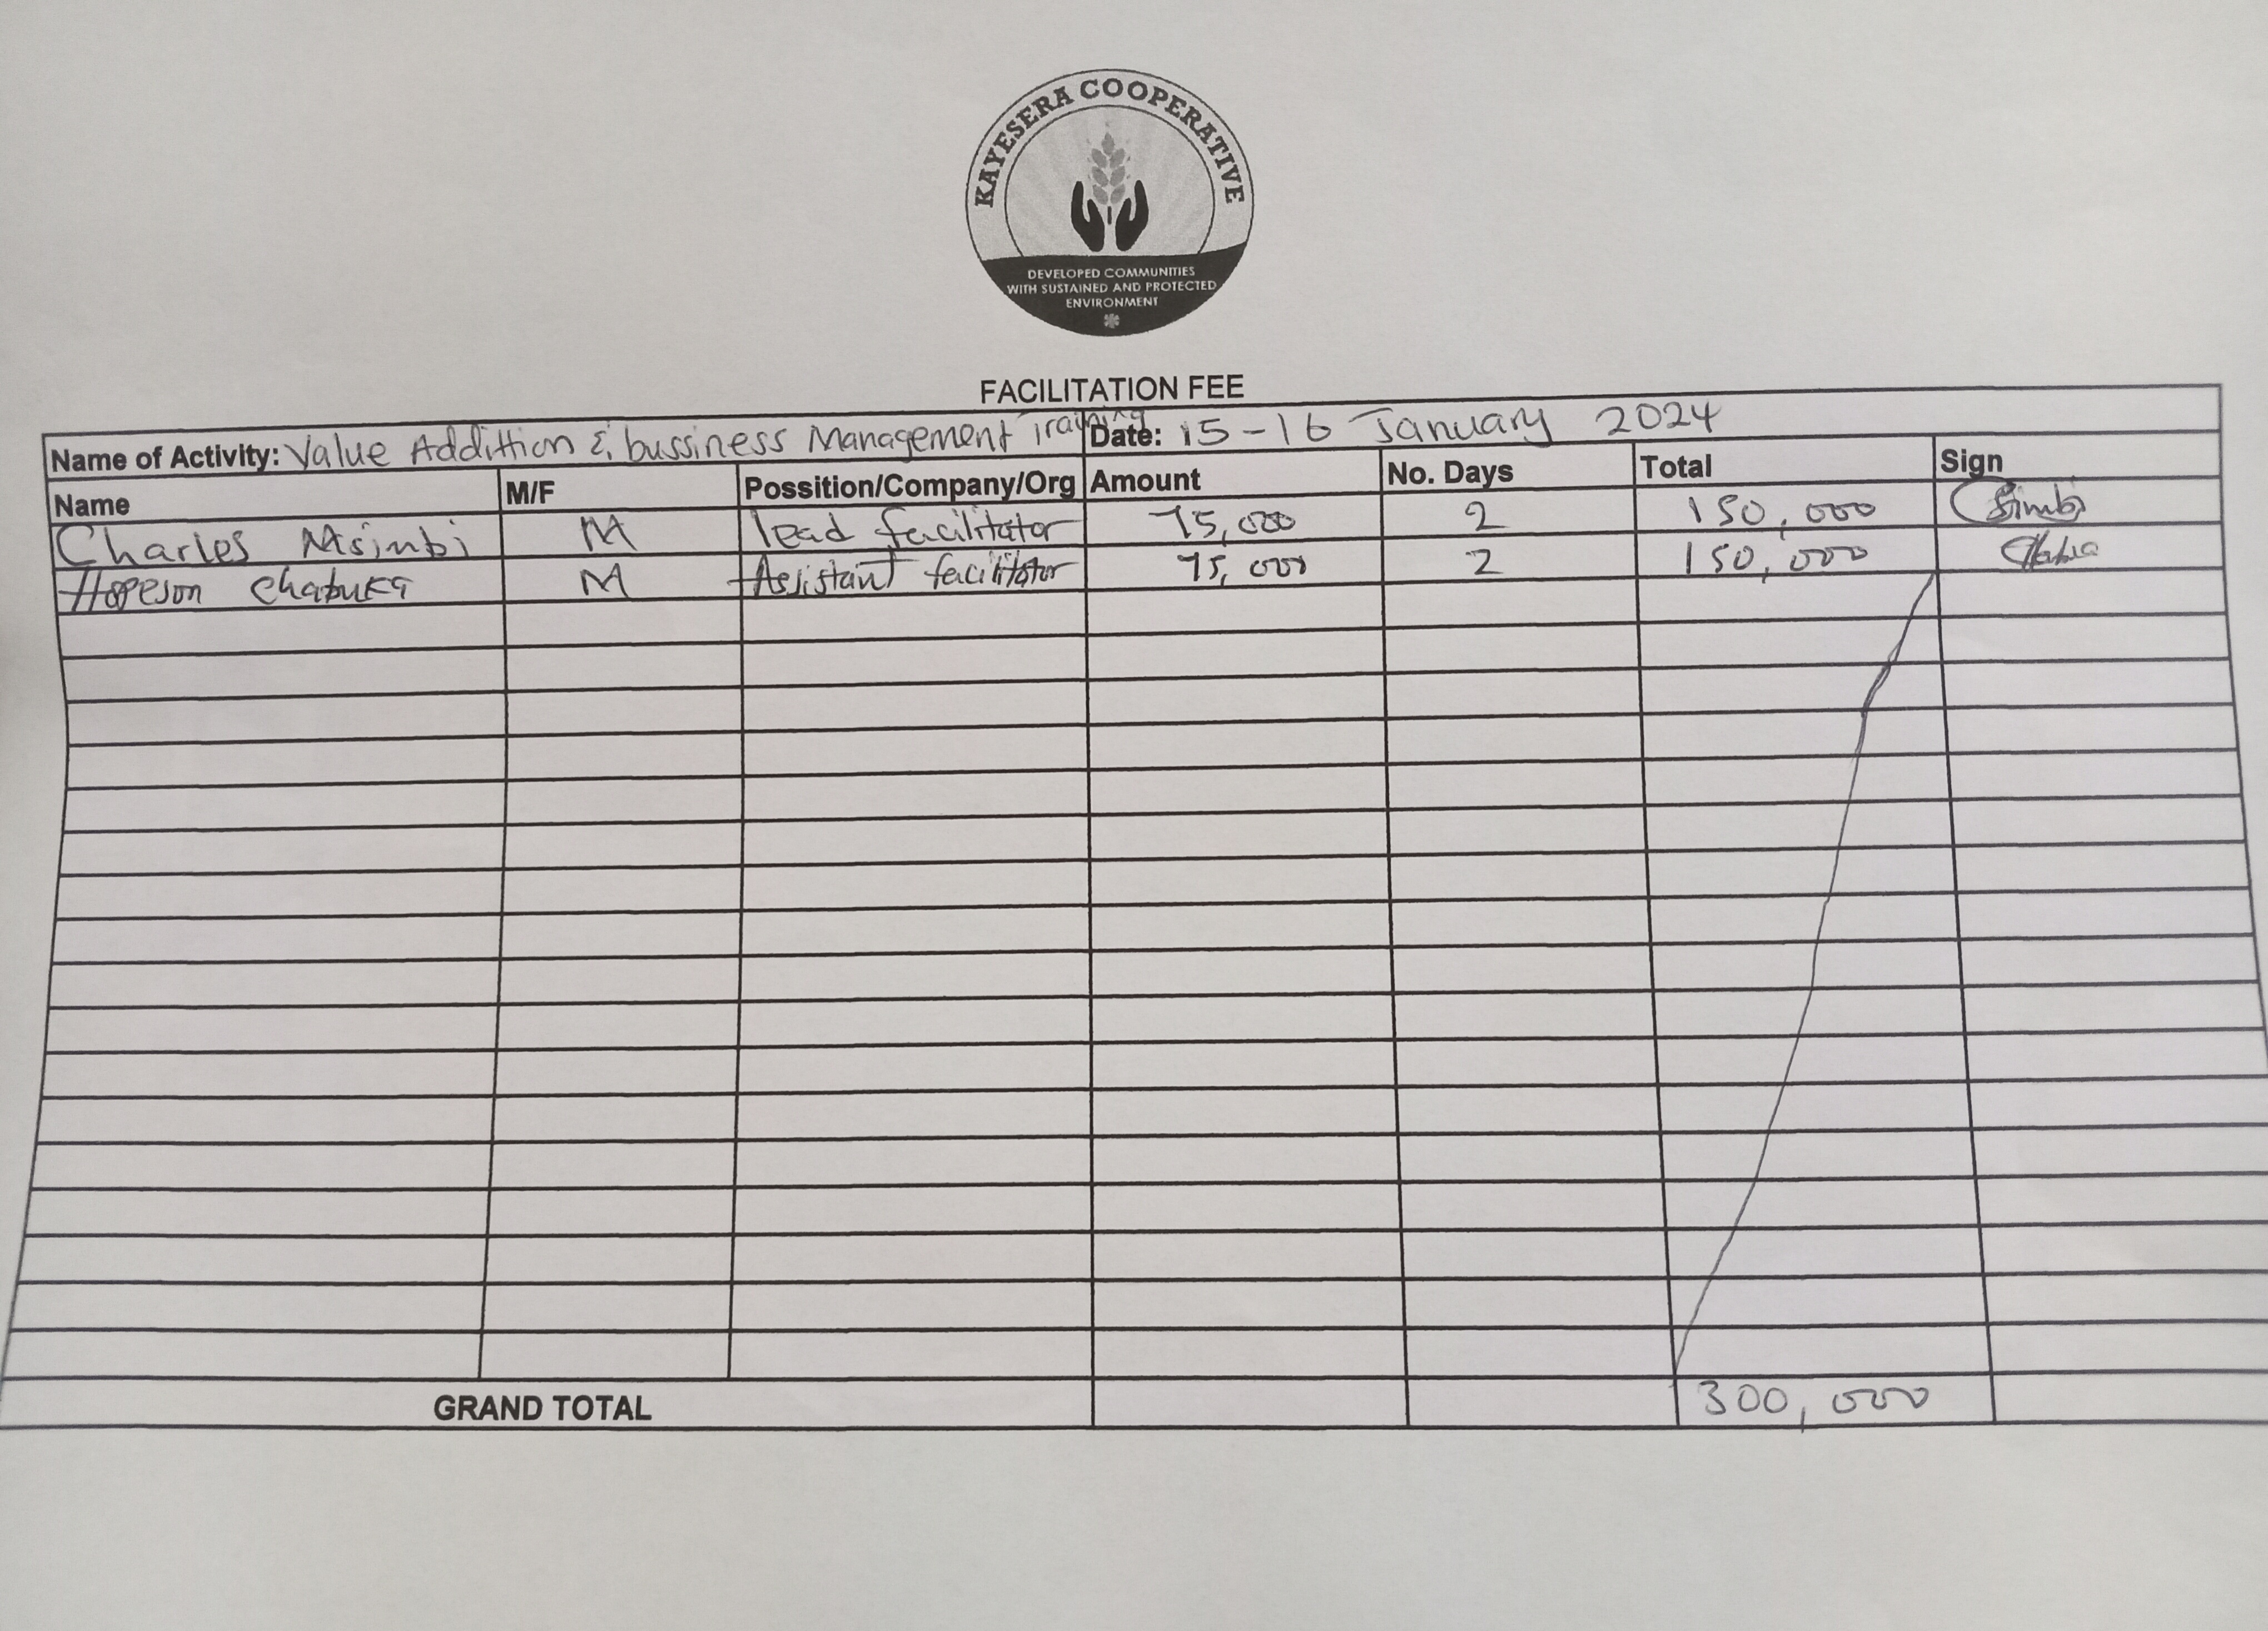 KAYESERA COOPERATIVE
DEVELOPED COMMUNITIES
WITH SUSTAINED AND PROTECTED
ENVIRONMENT
FACILITATION FEE
Name of Activity: Value Addittion & bussiness Management Training Date: 15-16 January 2024
Name M/F Possition/Company/Org Amount No. Days Total Sign
Charles Msimbi M lead facilitator 75,000 2 150,000
Hopeson Chabuka M Assistant facilitator 75,000 2 150,000
GRAND TOTAL 300,000